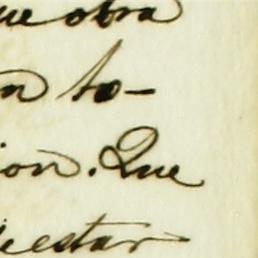 que obra
n to-
ion. Que
estar